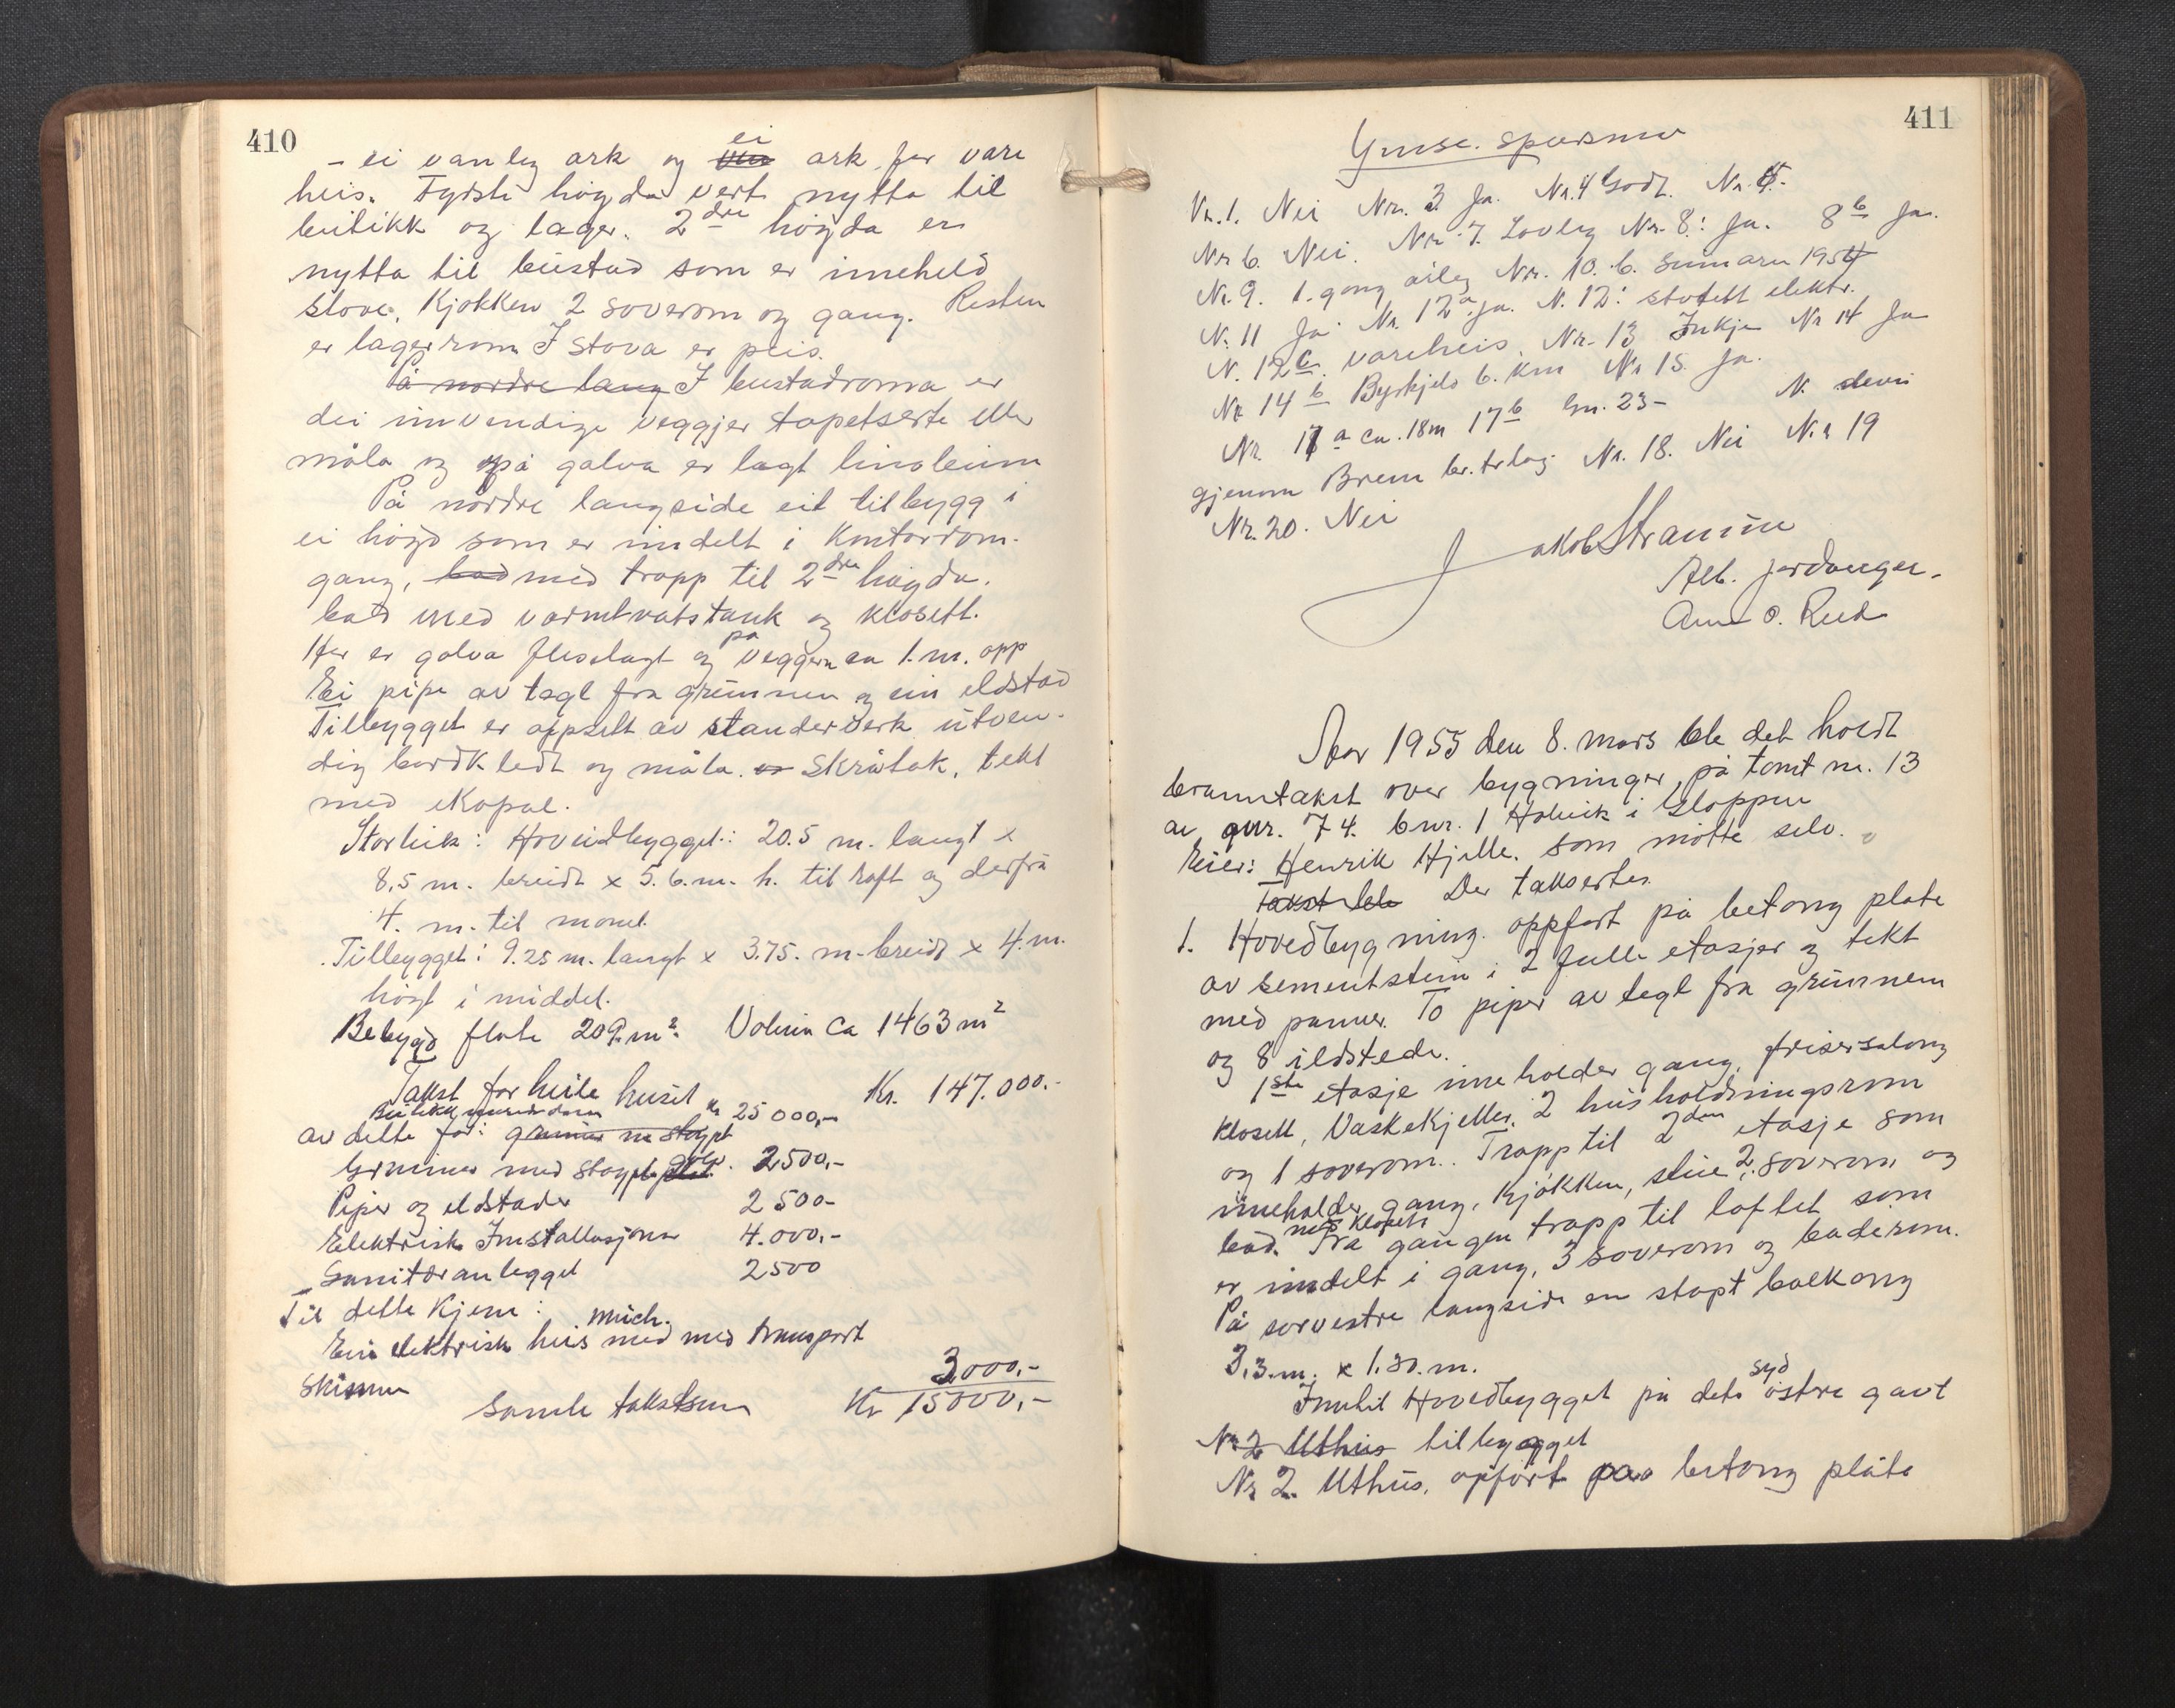 410
- ei vanleg ark og ei ark for vare
heis. Fyrste høgda vert nytta til
butikk og lager. 2dre høgda er
nytta til bustad som er inneheld
stove, Kjøkken 2 soverom og gang. Resten
er lagerrom I stova er peis.
På nordre lang I bustadroma er
dei innvendige veggjer tapetserte eller
måla og på golva er lagt linoleum
På nordre langside eit tilbygg i
ei høgd som er inndelt i Kontorrom.
gang, bad med trapp til 2dre høgda.
bad med varmtvatstank og klosett.
Her er golva fliselagt og på veggern ca 1. m. opp
Ei pipe av tegl fra grunnen og ein eldstad
Tilbygget er oppsett av standerverk utven-
dig bordkledt og måla. og Skråtak, tekt
med ekopal.
Storleik: Hovudbygget: 20.5 m. langt x
8,5 m. breidt x 5.6. m. h. til raft og derfrå
4. m. til mønet
Tilbygget: 9.25 m. langt x 3.75. m. breidt x 4. m.
høgt i middel.
Bebygd flate 209. m². Volum ca 1463 m²
Takst for heile huset Kr. 147.000.-
Butikk kr 25 000,-
av dette for: grunn m støypt
Grunnur med støypt golv. 2500,-
Piper og eldstader 2500-
Elektrisk Installasjon 4.000,-
Sanitæranlegget 2500
Til dette Kjem:
Ein elektrisk heis med med transport
skinner 3.000,-
Samla takstsum Kr 15000,-
411
Ymse. spørsmo
Nr. 1. Nei Nr. 3. Ja. Nr. 4 Godt. Nr. 5.-
Nr 6. Nei. Nr. 7. Lovleg Nr. 8: Ja. 8b Ja.
Nr. 9. 1. gong årleg Nr. 10. b. sumaren 1954
Nr. 11 Ja Nr. 12a. ja. N. 12: elektr.
N. 12c. vareheis. Nr. 13 Inkje Nr 14 Ja
Nr 14b Byrkjelo 6. km Nr 15. Ja.
Nr. 17a ca. 18m 17b 23- N.
gjenom Breim br.trlag Nr. 18. Nei Nr 19
Nr. 20. Nei
Jakob Straume
Alb. Jordanger.
O. Reed
År 1955 den 8. mars ble det holdt
branntakst over bygninger på tomt nr. 13
av gnr. 74. bnr. 1 Holvik i Gloppen
Eier: Henrik Hjelle. som møtte selv.
Takst ble Der taksertes
1. Hovedbygning. oppført på betong plate
av sementstein i 2 fulle etasjer og tekt
med panner. To piper av tegl fra grunnen
og 8 ildsteder.
1ste etasje inneholder gang, frisersalong
klosett, Vaskekjeller, 2 husholdningsrom
og 1 soverom. Trapp til 2den etasje som
inneholder gang, kjøkken, stue 2. soverom og
bad. med Klosett Fra gangen trapp til loftet som
er inndelt i gang, 3 soverom og baderom.
På sørvestre langside en støpt balkong
3,3. m. x 1.30. m.
Inntil Hovedbygget på dets syd østre gavl
Nr 2 Uthus tilbygget
Nr 2. Uthus, opført paa betong plate